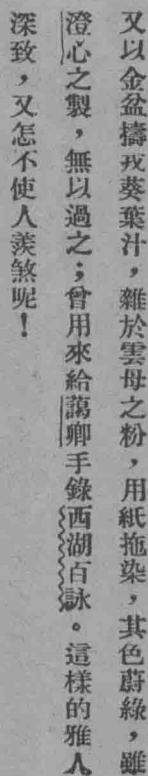 又以金盆擣戎葵葉汁，雜於雲母之粉，用紙拖染，其色蔚綠，雖
澄心之製，無以過之；曾用來給藹卿手錄西湖百詠。這樣的雅人
深致，又怎不使人羨煞呢！